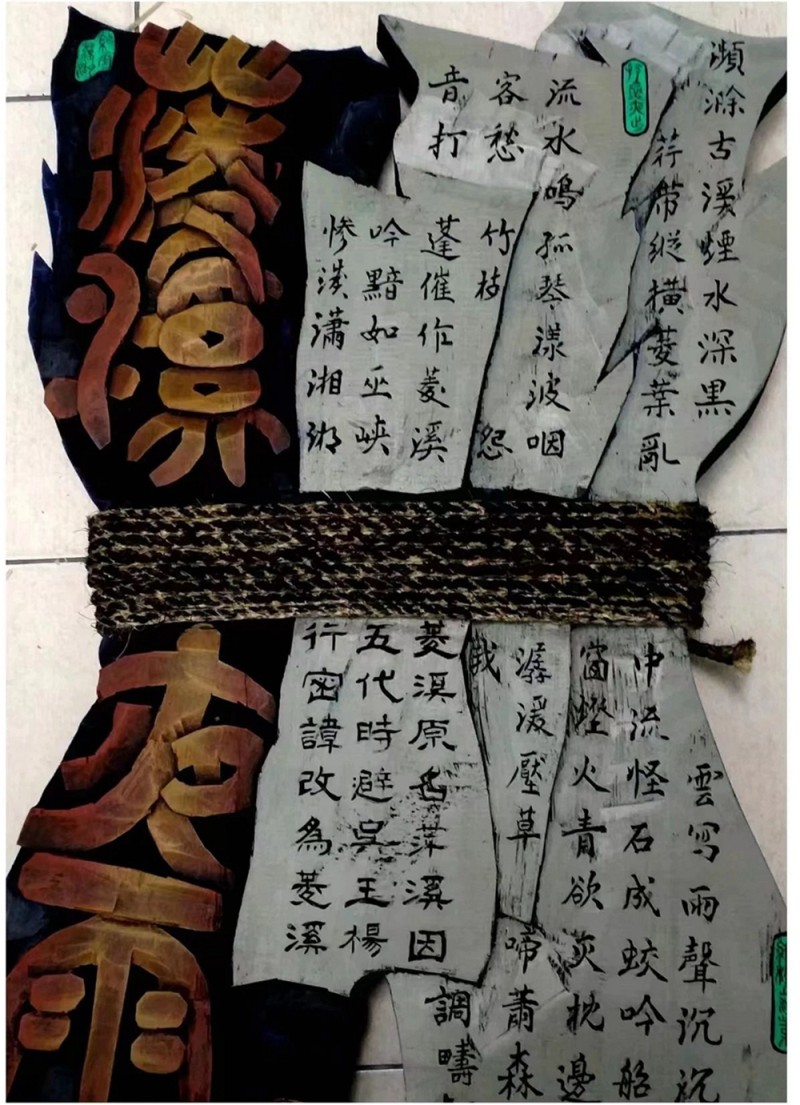 瀕滁古溪煙水深黑
荇帶縱横菱葉亂
流水鳴孤琴漾波咽
客愁
竹枝
怨
音打
蓬催作菱溪
吟黯如巫峽
慘淡瀟湘
雲寫雨聲沉沉
中流怪石成蛟吟船
窗燈火青欲灰枕邊
潺湲壓草
啼蕭森
調疇
菱溪原名荇溪因
五代時避吳王楊
行密諱改為菱溪
夜雨